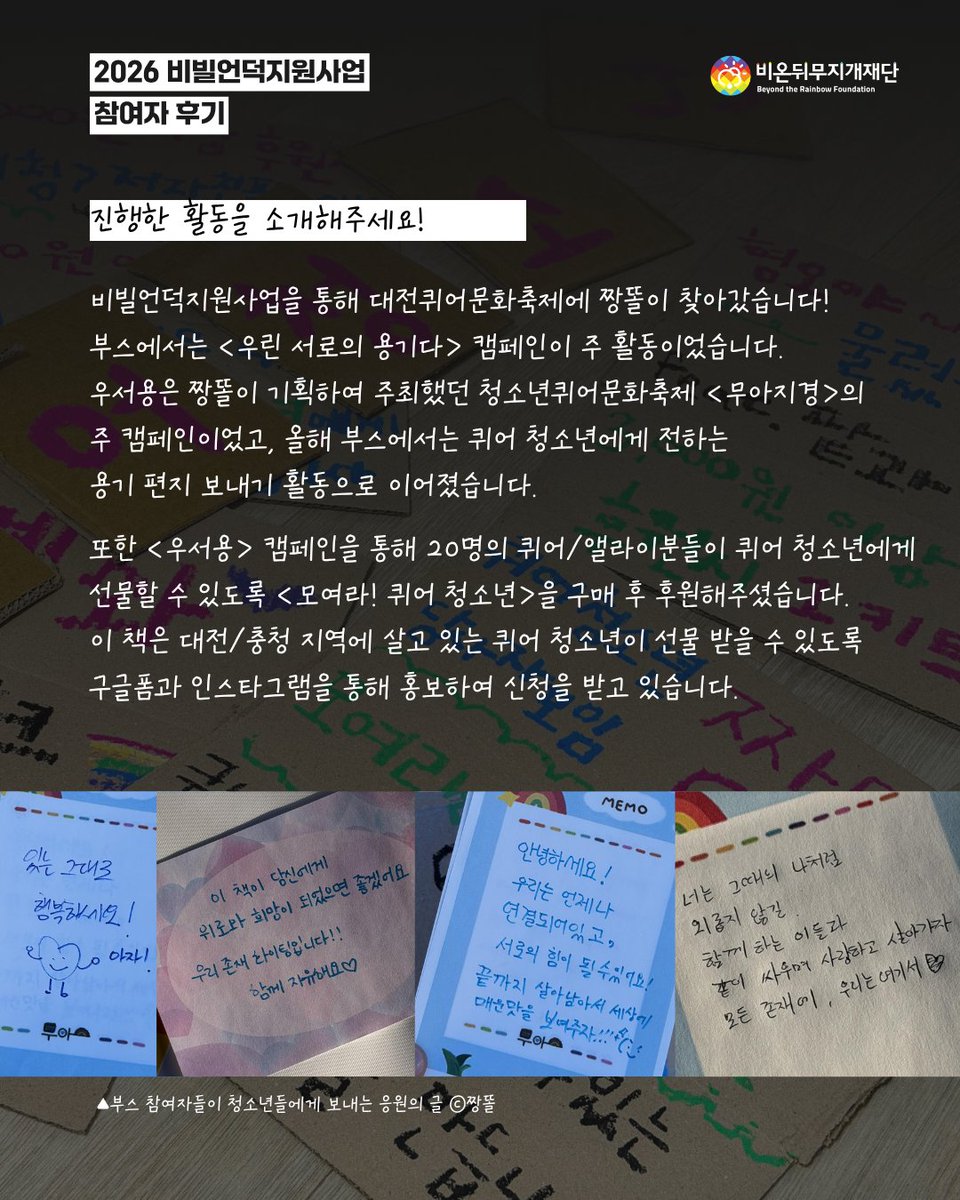 2026 비빌언덕지원사업
참여자 후기
비온뒤무지개재단
Beyond the Rainbow Foundation
진행한 활동을 소개해주세요!
비빌언덕지원사업을 통해 대전퀴어문화축제에 짱똘이 찾아갔습니다!
부스에서는 <우린 서로의 용기다> 캠페인이 주 활동이었습니다.
우서용은 짱똘이 기획하여 주최했던 청소년퀴어문화축제 <무아지경>의
주 캠페인이었고, 올해 부스에서는 퀴어 청소년에게 전하는
용기 편지 보내기 활동으로 이어졌습니다.
또한 <우서용> 캠페인을 통해 20명의 퀴어/앨라이분들이 퀴어 청소년에게
선물할 수 있도록 <모여라! 퀴어 청소년>을 구매 후 후원해주셨습니다.
이 책은 대전/충청 지역에 살고 있는 퀴어 청소년이 선물 받을 수 있도록
구글폼과 인스타그램을 통해 홍보하여 신청을 받고 있습니다.
있는 그대로
행복하세요!
아자!
무아
이 책이 당신에게
위로와 희망이 되었으면 좋겠어요
우리 존재 화이팅입니다!!
함께 자유해요♡
MEMO
안녕하세요!
우리는 언제나
연결되어있고,
서로의 힘이 될 수 있어요!
끝까지 살아남아서 세상에
매운맛을 보여주자!!!
무아
너는 그때의 나처럼
외롭지 않길
함께 하는 이들과
같이 싸우며 사랑하고 살아가자
모든 존재여, 우리는 여기서
▲부스 참여자들이 청소년들에게 보내는 응원의 글 ⓒ짱똘